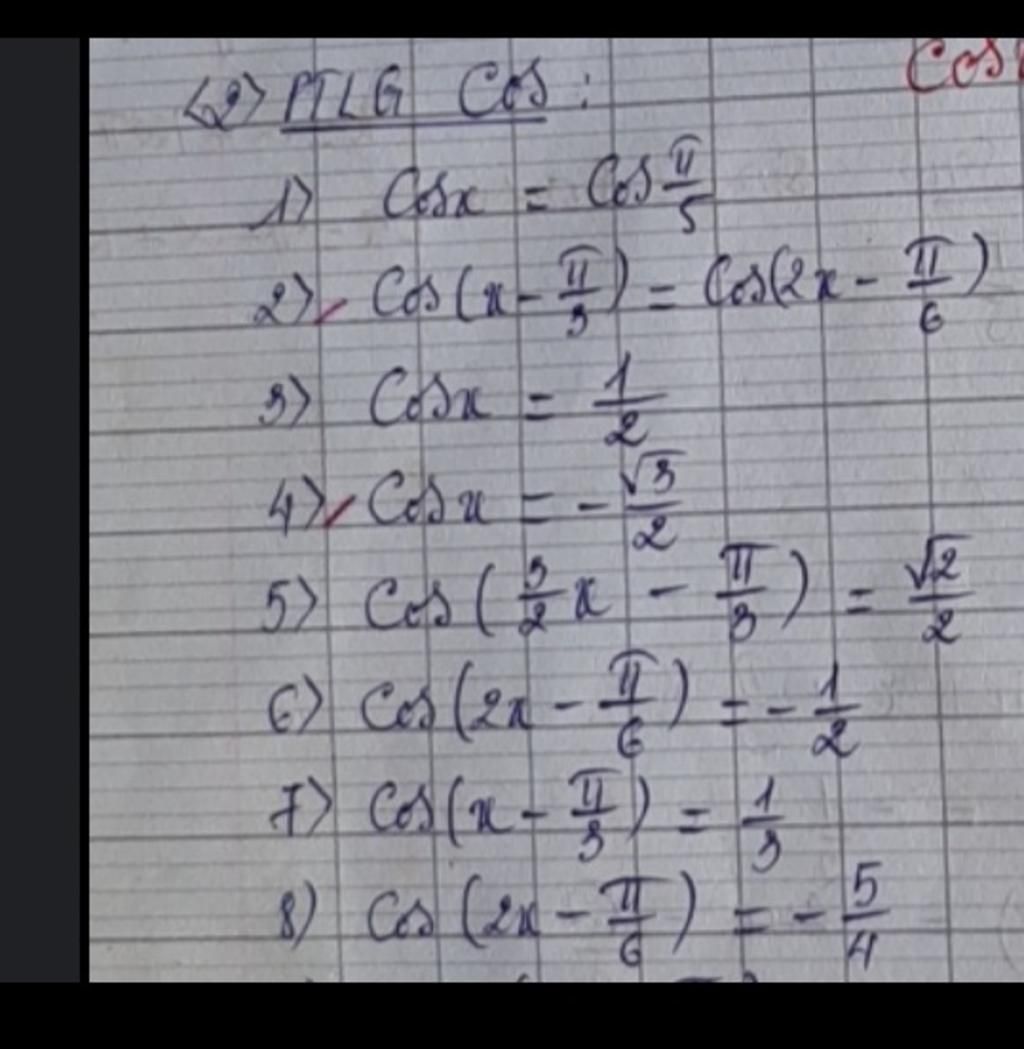 <2> PTLG Cos :
Cos
1) Cosx = Cos π/5
2) Cos(x - π/3) = Cos(2x - π/6)
3) Cosx = 1/2
4) Cosx = - √3/2
5) Cos(3/2 x - π/3) = √2/2
6) Cos(2x - π/6) = - 1/2
7) Cos(x - π/3) = 1/3
8) Cos(2x - π/6) = - 5/4